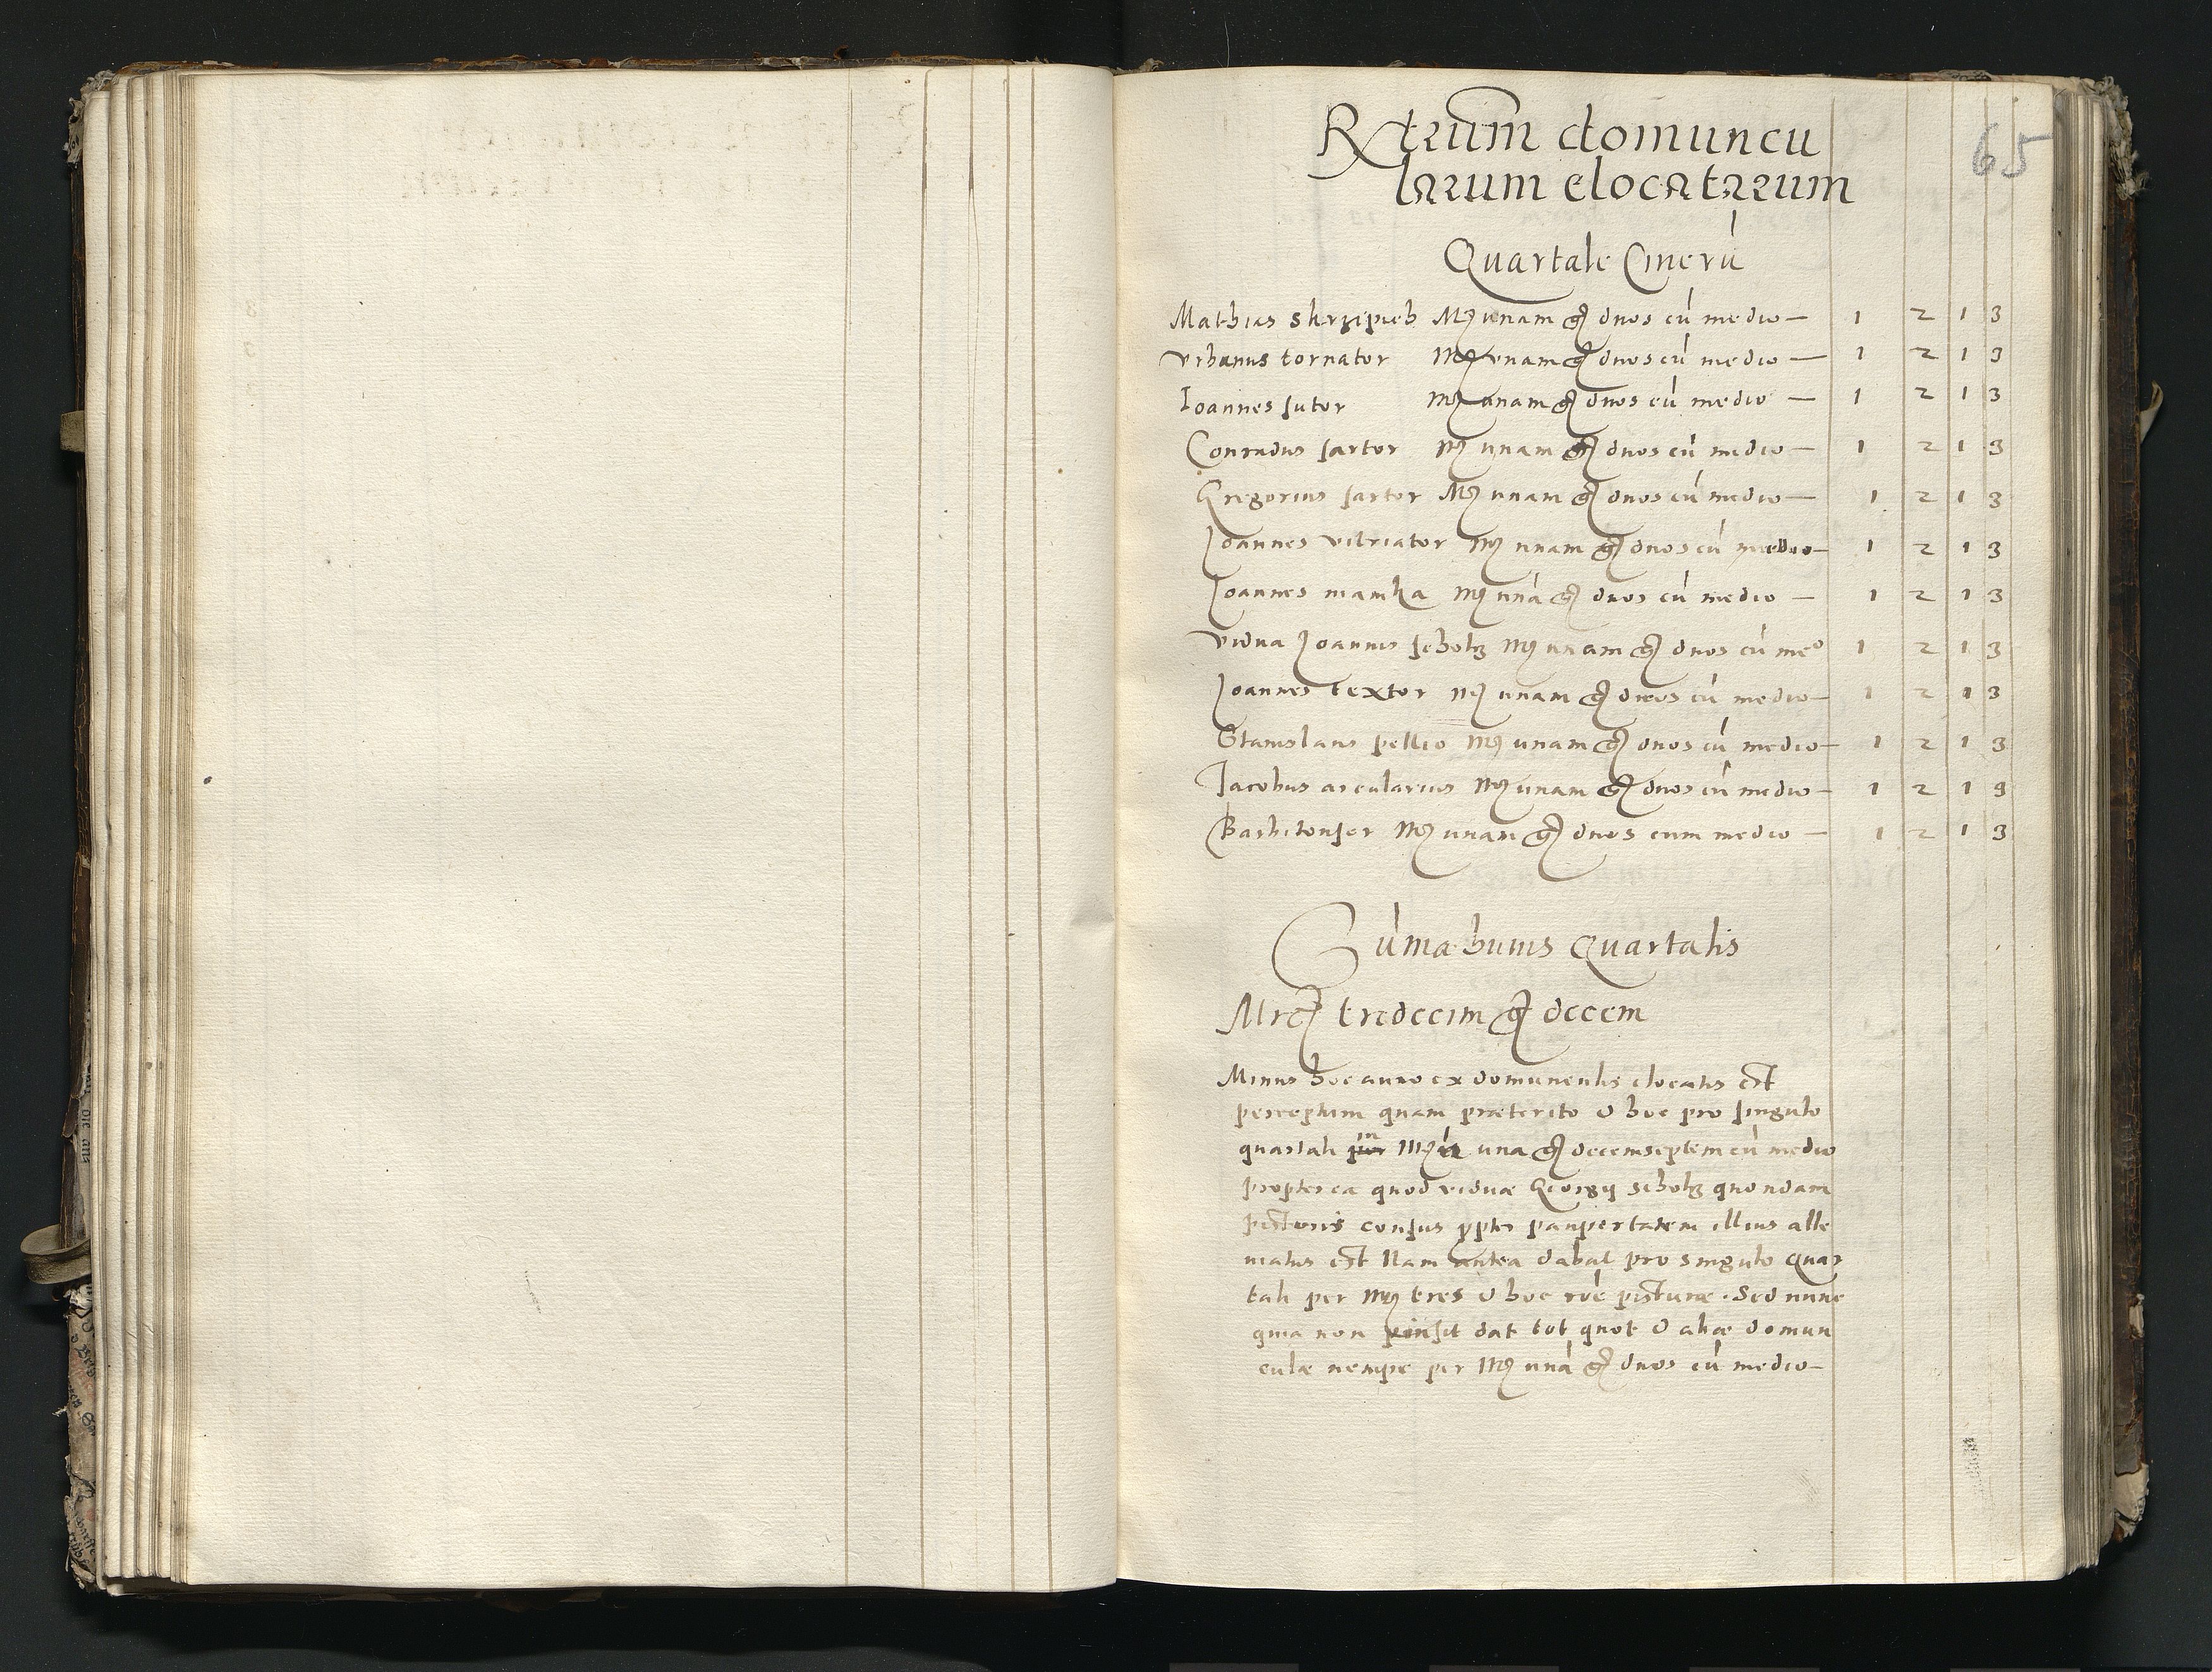 Rxtrum domuncu
larum elocatarum
65
Quartale Cinerū
Mathias skrzipieb Mꝝ unam gꝝ duos cū medio — 1 2 1 3
Vrbanus tornator Mꝝ unam gꝝ duos cū medio — 1 2 1 3
Ioannes sutor Mꝝ unam gꝝ duos cū medio — 1 2 1 3
Conradus sartor Mꝝ unam gꝝ duos cū medio — 1 2 1 3
Gregorius sartor Mꝝ unam gꝝ duos cū medio — 1 2 1 3
Joannes vitriator Mꝝ unam gꝝ duos cū medio — 1 2 1 3
Joannes mamka Mꝝ unā gꝝ duos cū medio — 1 2 1 3
Vidua Joannis scholtz Mꝝ unam gꝝ duos cū meo 1 2 1 3
Joannes textor Mꝝ unam gꝝ duos cū medio — 1 2 1 3
Stanislaus pellio Mꝝ unam gꝝ duos cū medio — 1 2 1 3
Jacobus arcularius Mꝝ unam gꝝ duos cū medio — 1 2 1 3
Barbitonsor Mꝝ unam gꝝ duos cum medio — 1 2 1 3
Sūma huius Quartalis
Mrcꝝ tredecim gꝝ decem
Minus hoc anno ex domunculis elocatis est
perceptum quam præterito & hoc pro singulo
quartali in Mꝝ una gꝝ decemseptem cū medio
propterea quod viduæ Georgij scholtz quondam
pistoris census ppter paupertatem illius alle
uiatus est Nam antea dabat pro singulo Quar
tali per Mꝝ tres & hoc rōe pisturæ. Sed nunc
quia non pinsit dat tot quot & aliæ domun
culæ nempe per Mꝝ unā gꝝ duos cū medio —